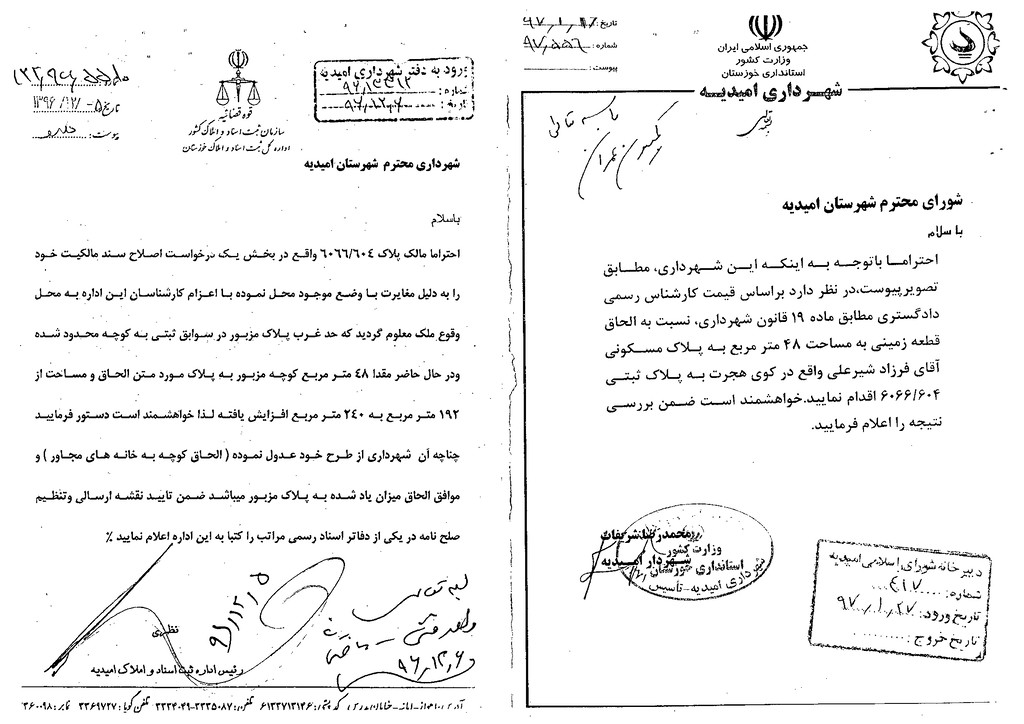 ورود به دفتر شهرداری امیدیه
شماره:
تاریخ:
تاریخ
پیوست:
قوه قضائیه
سازمان ثبت اسناد و املاک کشور
اداره کل ثبت اسناد و املاک خوزستان
شهرداری محترم شهرستان امیدیه
باسلام
احتراما مالک پلاک ۶۰۶۶/۶۰۴ واقع در بخش یک درخواست اصلاح سند مالکیت خود
را به دلیل مغایرت با وضع موجود محل نموده با اعزام کارشناسان این اداره به محل
وقوع ملک معلوم گردید که حد غرب پلاک مزبور در سوابق ثبتی به کوچه محدود شده
ودر حال حاضر مقدا ۴۸ متر مربع کوچه مزبور به پلاک مورد متن الحاق و مساحت از
۱۹۲ متر مربع به ۲۴۰ متر مربع افزایش یافته لذا خواهشمند است دستور فرمایید
چناچه آن شهرداری از طرح خود عدول نموده ( الحاق کوچه به خانه های مجاور ) و
موافق الحاق میزان یاد شده به پلاک مزبور میباشد ضمن تایید نقشه ارسالی وتنظیم
صلح نامه در یکی از دفاتر اسناد رسمی مراتب را کتبا به این اداره اعلام نمایید ٪
نظری
رئیس اداره ثبت اسناد و املاک امیدیه
تاریخ:
شماره:
پیوست:
جمهوری اسلامی ایران
وزارت کشور
استانداری خوزستان
شهرداری امیدیه
بسمه تعالی
شورای محترم شهرستان امیدیه
با سلام
احتراما باتوجه به اینکه این شهرداری، مطابق
تصویرپیوست،در نظر دارد براساس قیمت کارشناس رسمی
دادگستری مطابق ماده ۱۹ قانون شهرداری، نسبت به الحاق
قطعه زمینی به مساحت ۴۸ متر مربع به پلاک مسکونی
آقای فرزاد شیرعلی واقع در کوی هجرت به پلاک ثبتی
۶۰۶۶/۶۰۴ اقدام نمایید.خواهشمند است ضمن بررسی
نتیجه را اعلام فرمایید.
محمدرضا شریفات
شهردار امیدیه
وزارت کشور
استانداری خوزستان
شهرداری امیدیه-تأسیس
دبیرخانه شورای اسلامی امیدیه
شماره: ۴۱۷
تاریخ ورود: ۹۷/۱/۲۷
تاریخ خروج: